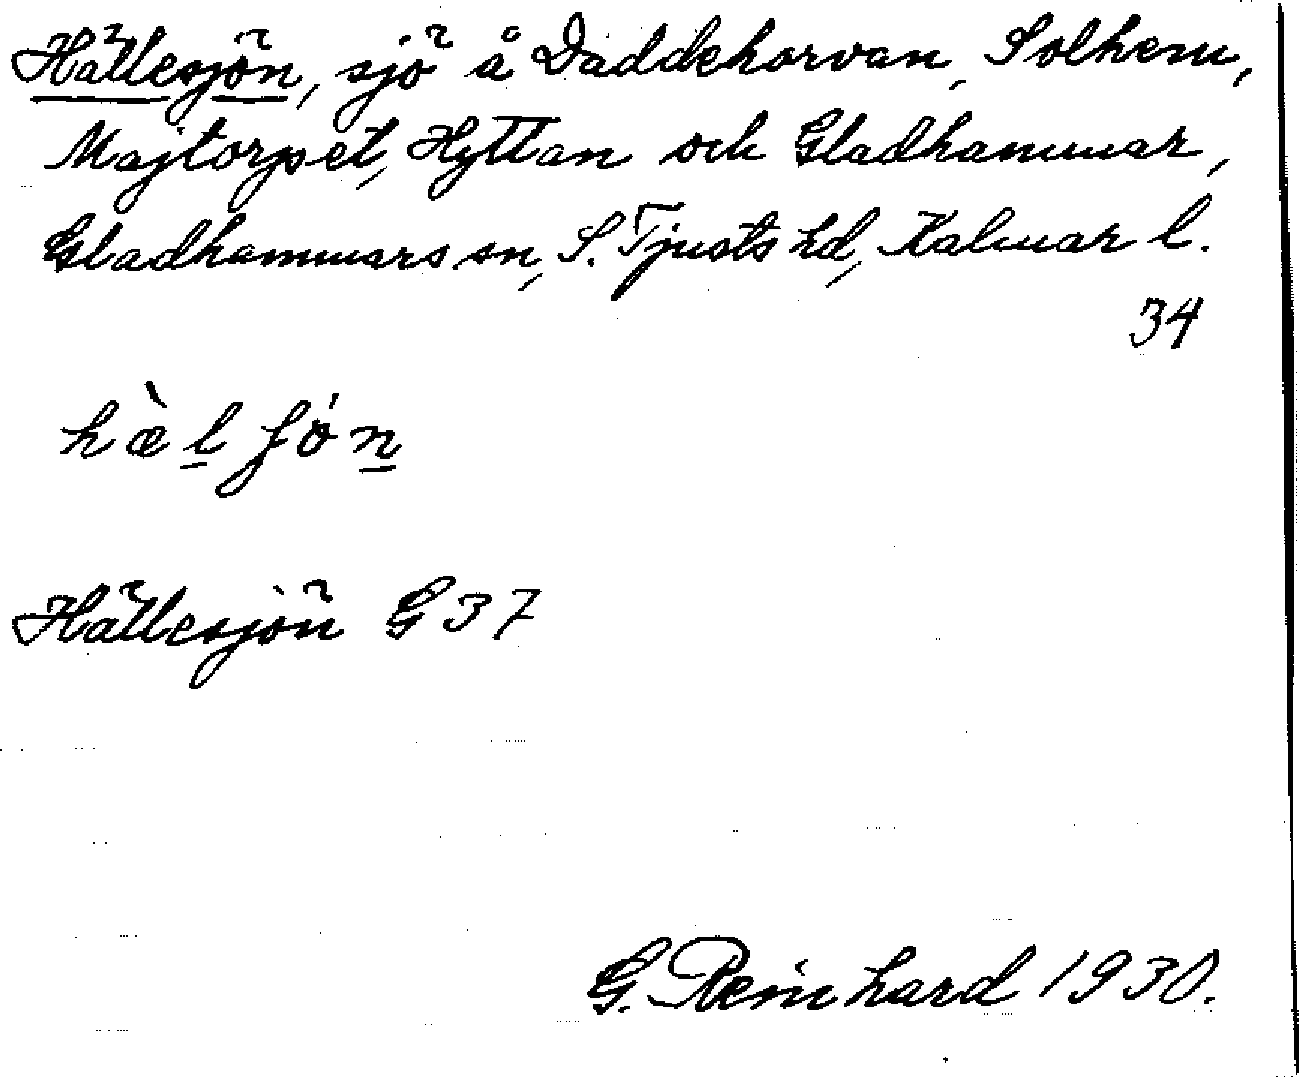 Hällesjön, sjö å Daddehorvan, Solhem,
Majtorpet, Hyttan och Gladhammar,
Gladhammars sn, S. Tjusts hd, Kalmar l.
34
hæ̀l̲ʃón̲
Hällesjön G 37
G. Reinhard 1930.